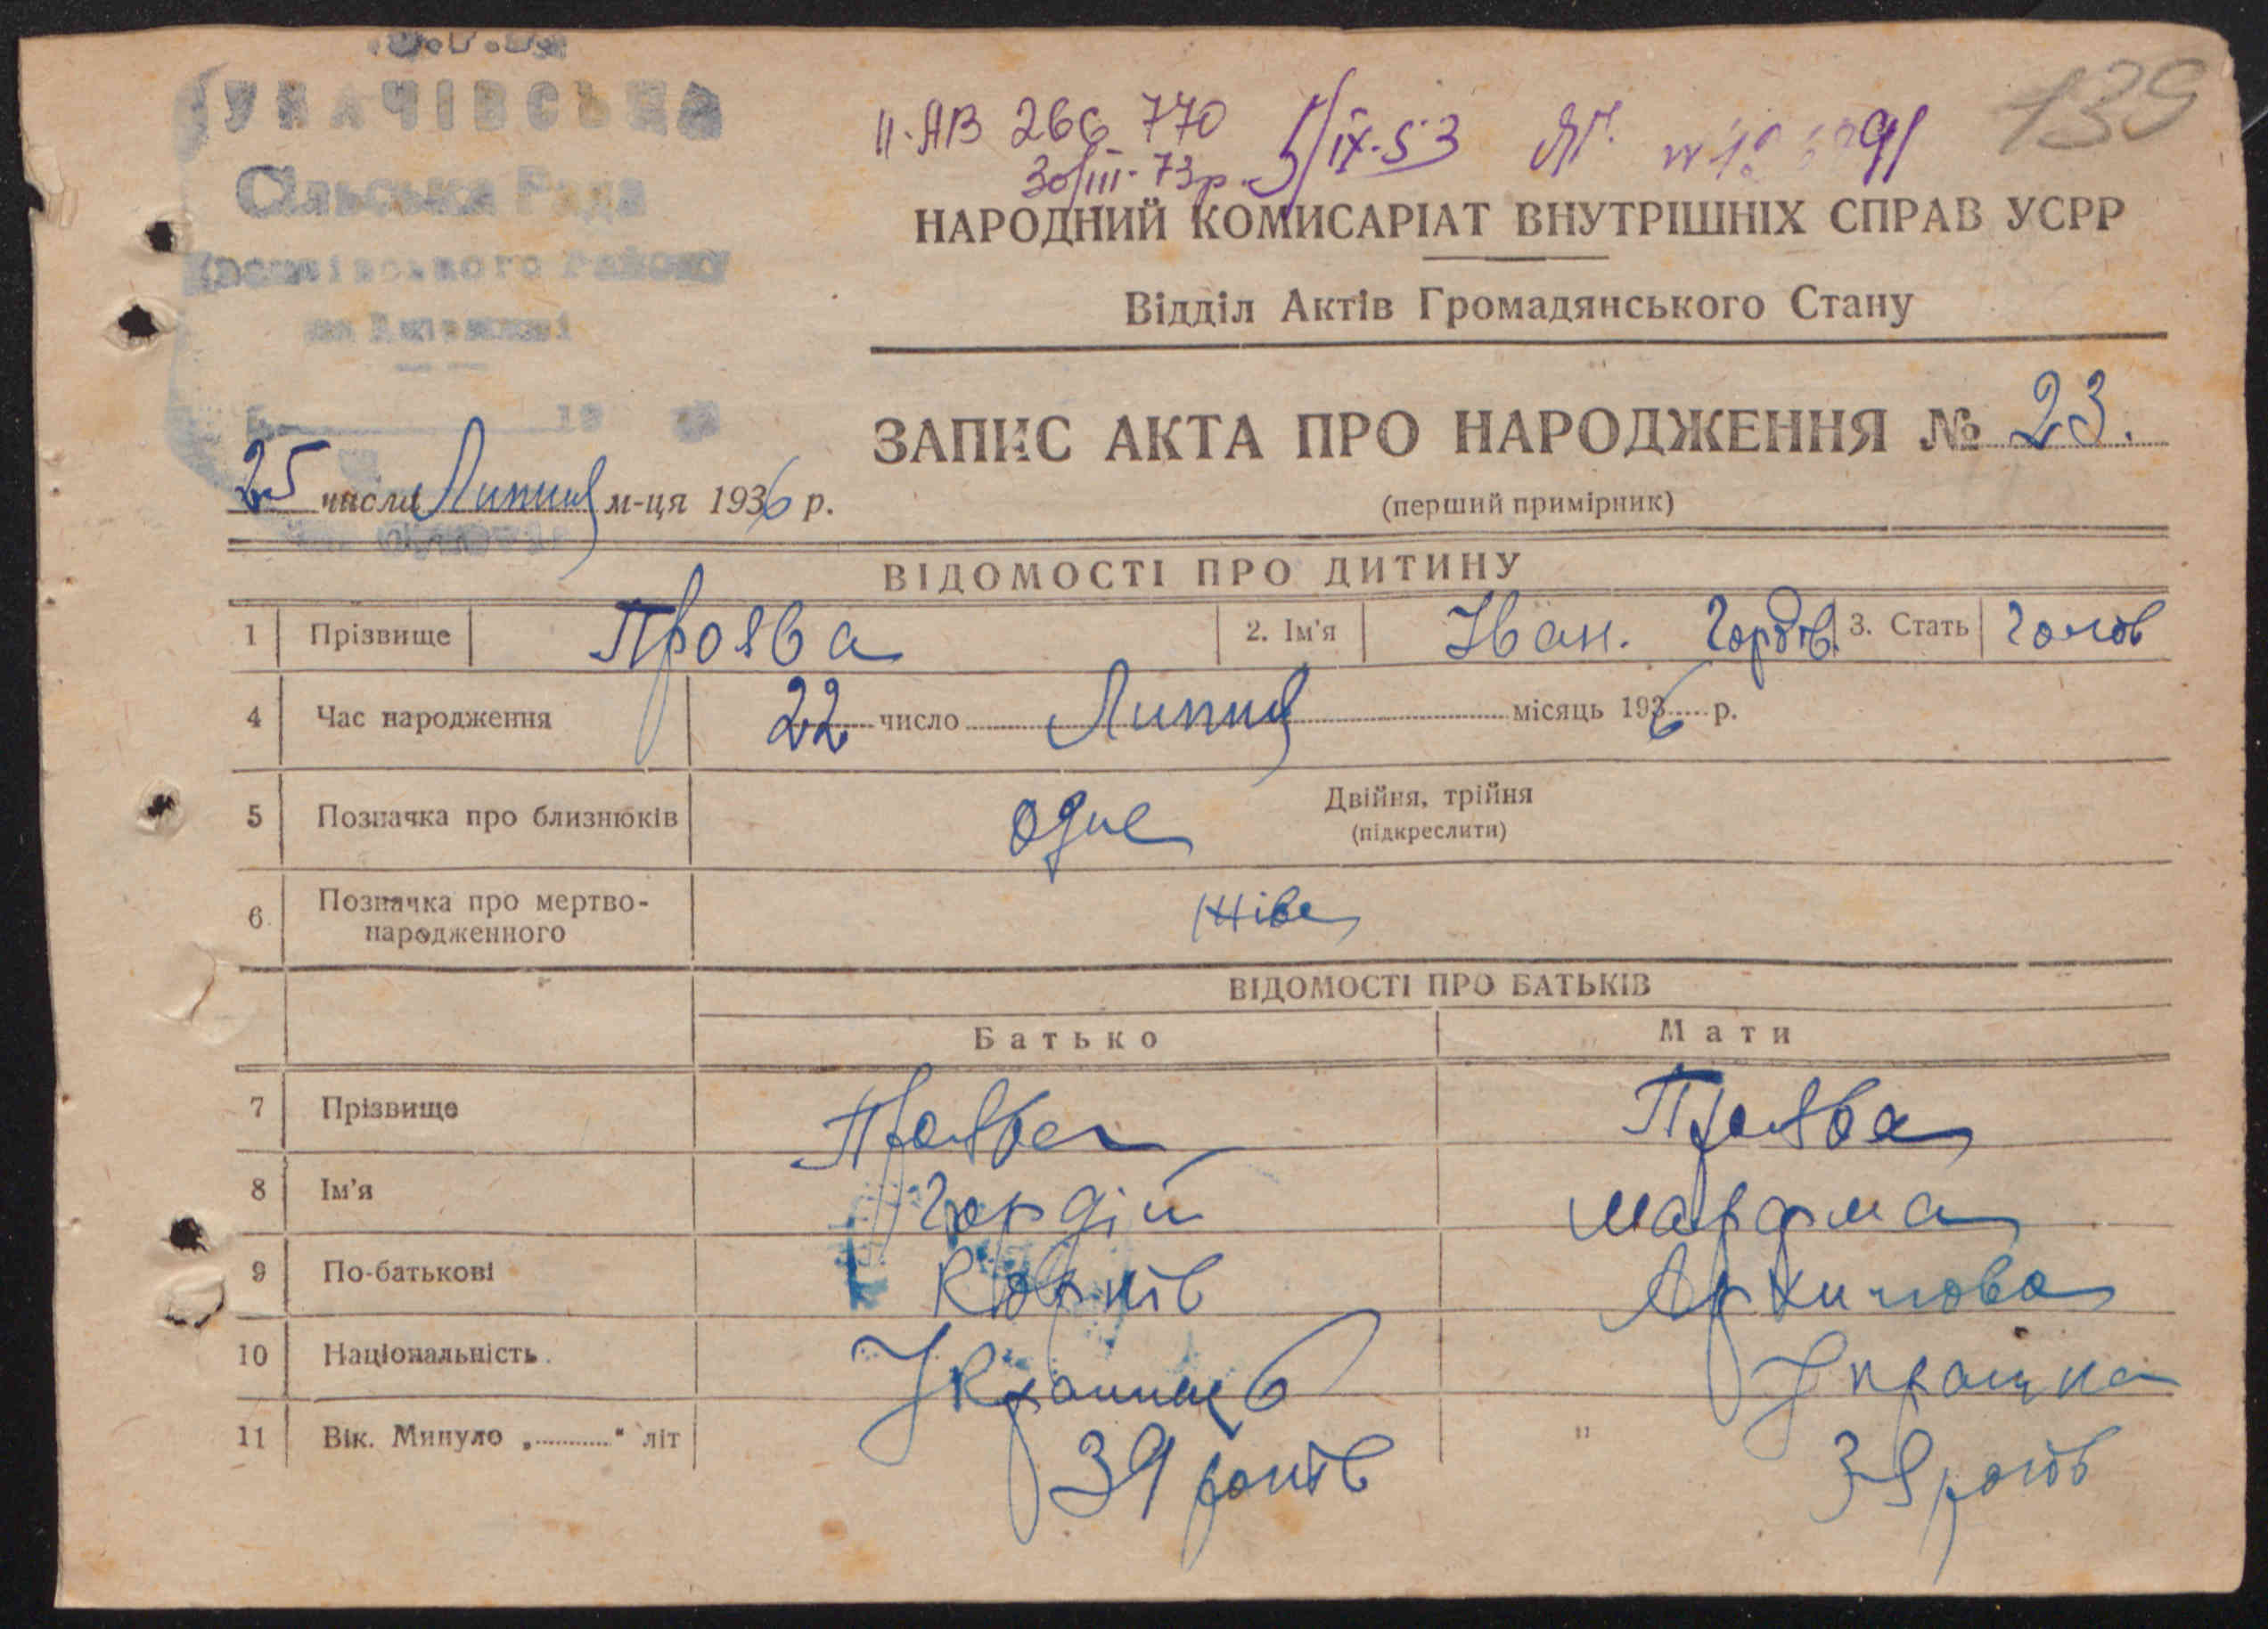 Сільська Рада
II-АВ 266 770
30/III-73р. 5/IX-53
139
НАРОДНИЙ КОМИСАРІАТ ВНУТРІШНІХ СПРАВ УСРР
Відділ Актів Громадянського Стану
ЗАПИС АКТА ПРО НАРОДЖЕННЯ № 23.
25 числа Липця м-ця 1936 р.
(перший примірник)
ВІДОМОСТІ ПРО ДИТИНУ
1 Прізвище Проява 2. Ім'я Іван. Гордів. 3. Стать Чолов
4 Час народження 22 число Липця місяць 1936 р.
5 Позначка про близнюків одне Двійня, трійня
(підкреслити)
6. Позначка про мертво-
народженного живе
ВІДОМОСТІ ПРО БАТЬКІВ
Батько Мати
7 Прізвище Проява Проява
8 Ім'я Гордій
9 По-батькові Корнів Архипова
10 Національність. Українець Українка
11 Вік. Минуло „............“ літ 39 років " 38 років